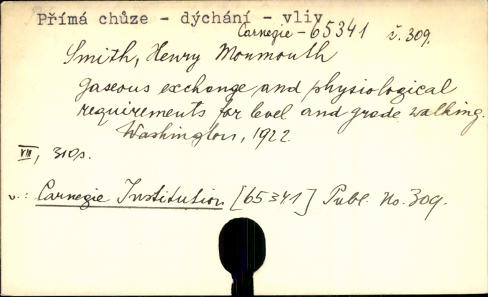 Přímá chůze - dýchání - vliv
Carnegie - 65341 č. 309.
Smith, Henry Monmouth
Gaseous exchange and physiological
requirements for level and grade walking.
Washington, 1922
VIII, 310s.
v.: Carnegie Institution [65341] Publ. No. 309.